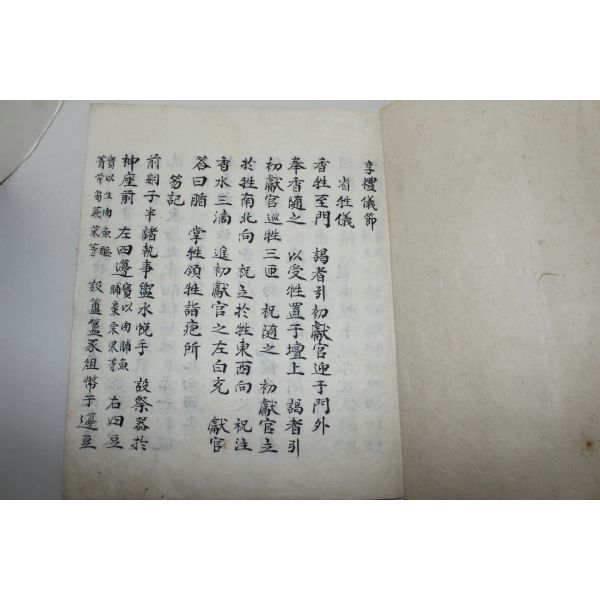 享禮儀節
省牲儀
香牲至門 謁者引初獻官迎于門外
奉香随之 以受牲置于壇上 謁者引
初獻官巡牲三匝 祝随之 初獻官立
於牲南北向 祝立於牲東西向 祝注
香水三滴 進初獻官之左白充 獻官
答曰腯 掌牲領牲詣疱所
笏記
前期子半諸執事盥水帨手 設祭器於
神座前 左四籩實以肉脯魚脯棗栗果等 右四豆
實以生肉魚醢菁芹芻蕨菜等 設簠簋豕俎幣于籩豆